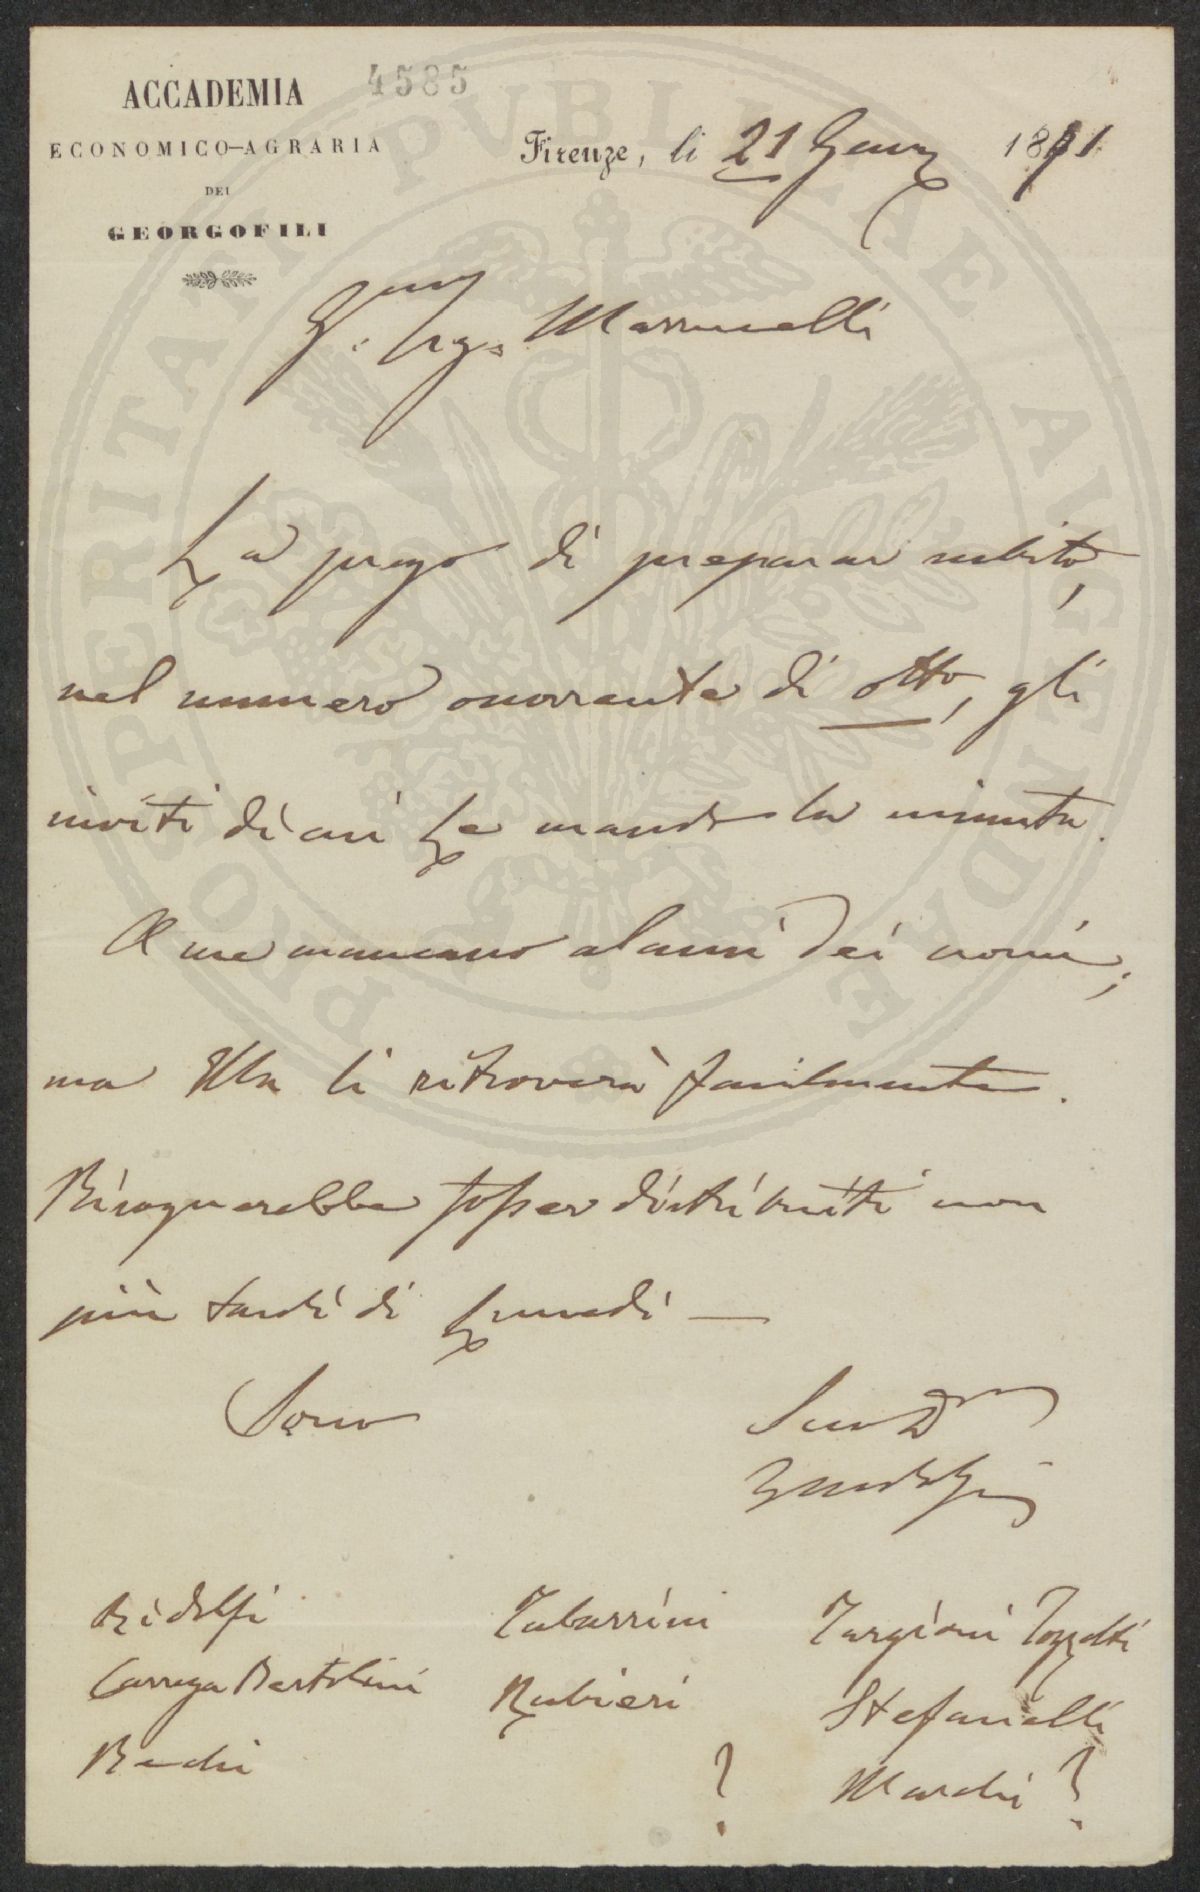 ACCADEMIA
ECONOMICO-AGRARIA
DEI
GEORGOFILI
4585
Firenze, li 21 Genn 1871
G. Sig. Marrucelli
La prego di preparar subito,
nel numero occorrente di otto, gli
inviti di cui Le mando la minuta.
A me mancano alcuni dei nomi;
ma Ella li ritroverà facilmente.
Bisognerebbe fosser distribuiti non
più tardi di Lunedì —
Sono
Suo
Ridolfi
Carrega Bertolini
Bechi
Tabarrini
Rubieri
?
Targioni Tozzetti
Stefanelli
Marchi ?
PROSPERITATI PVBLICAE AVGENDAE